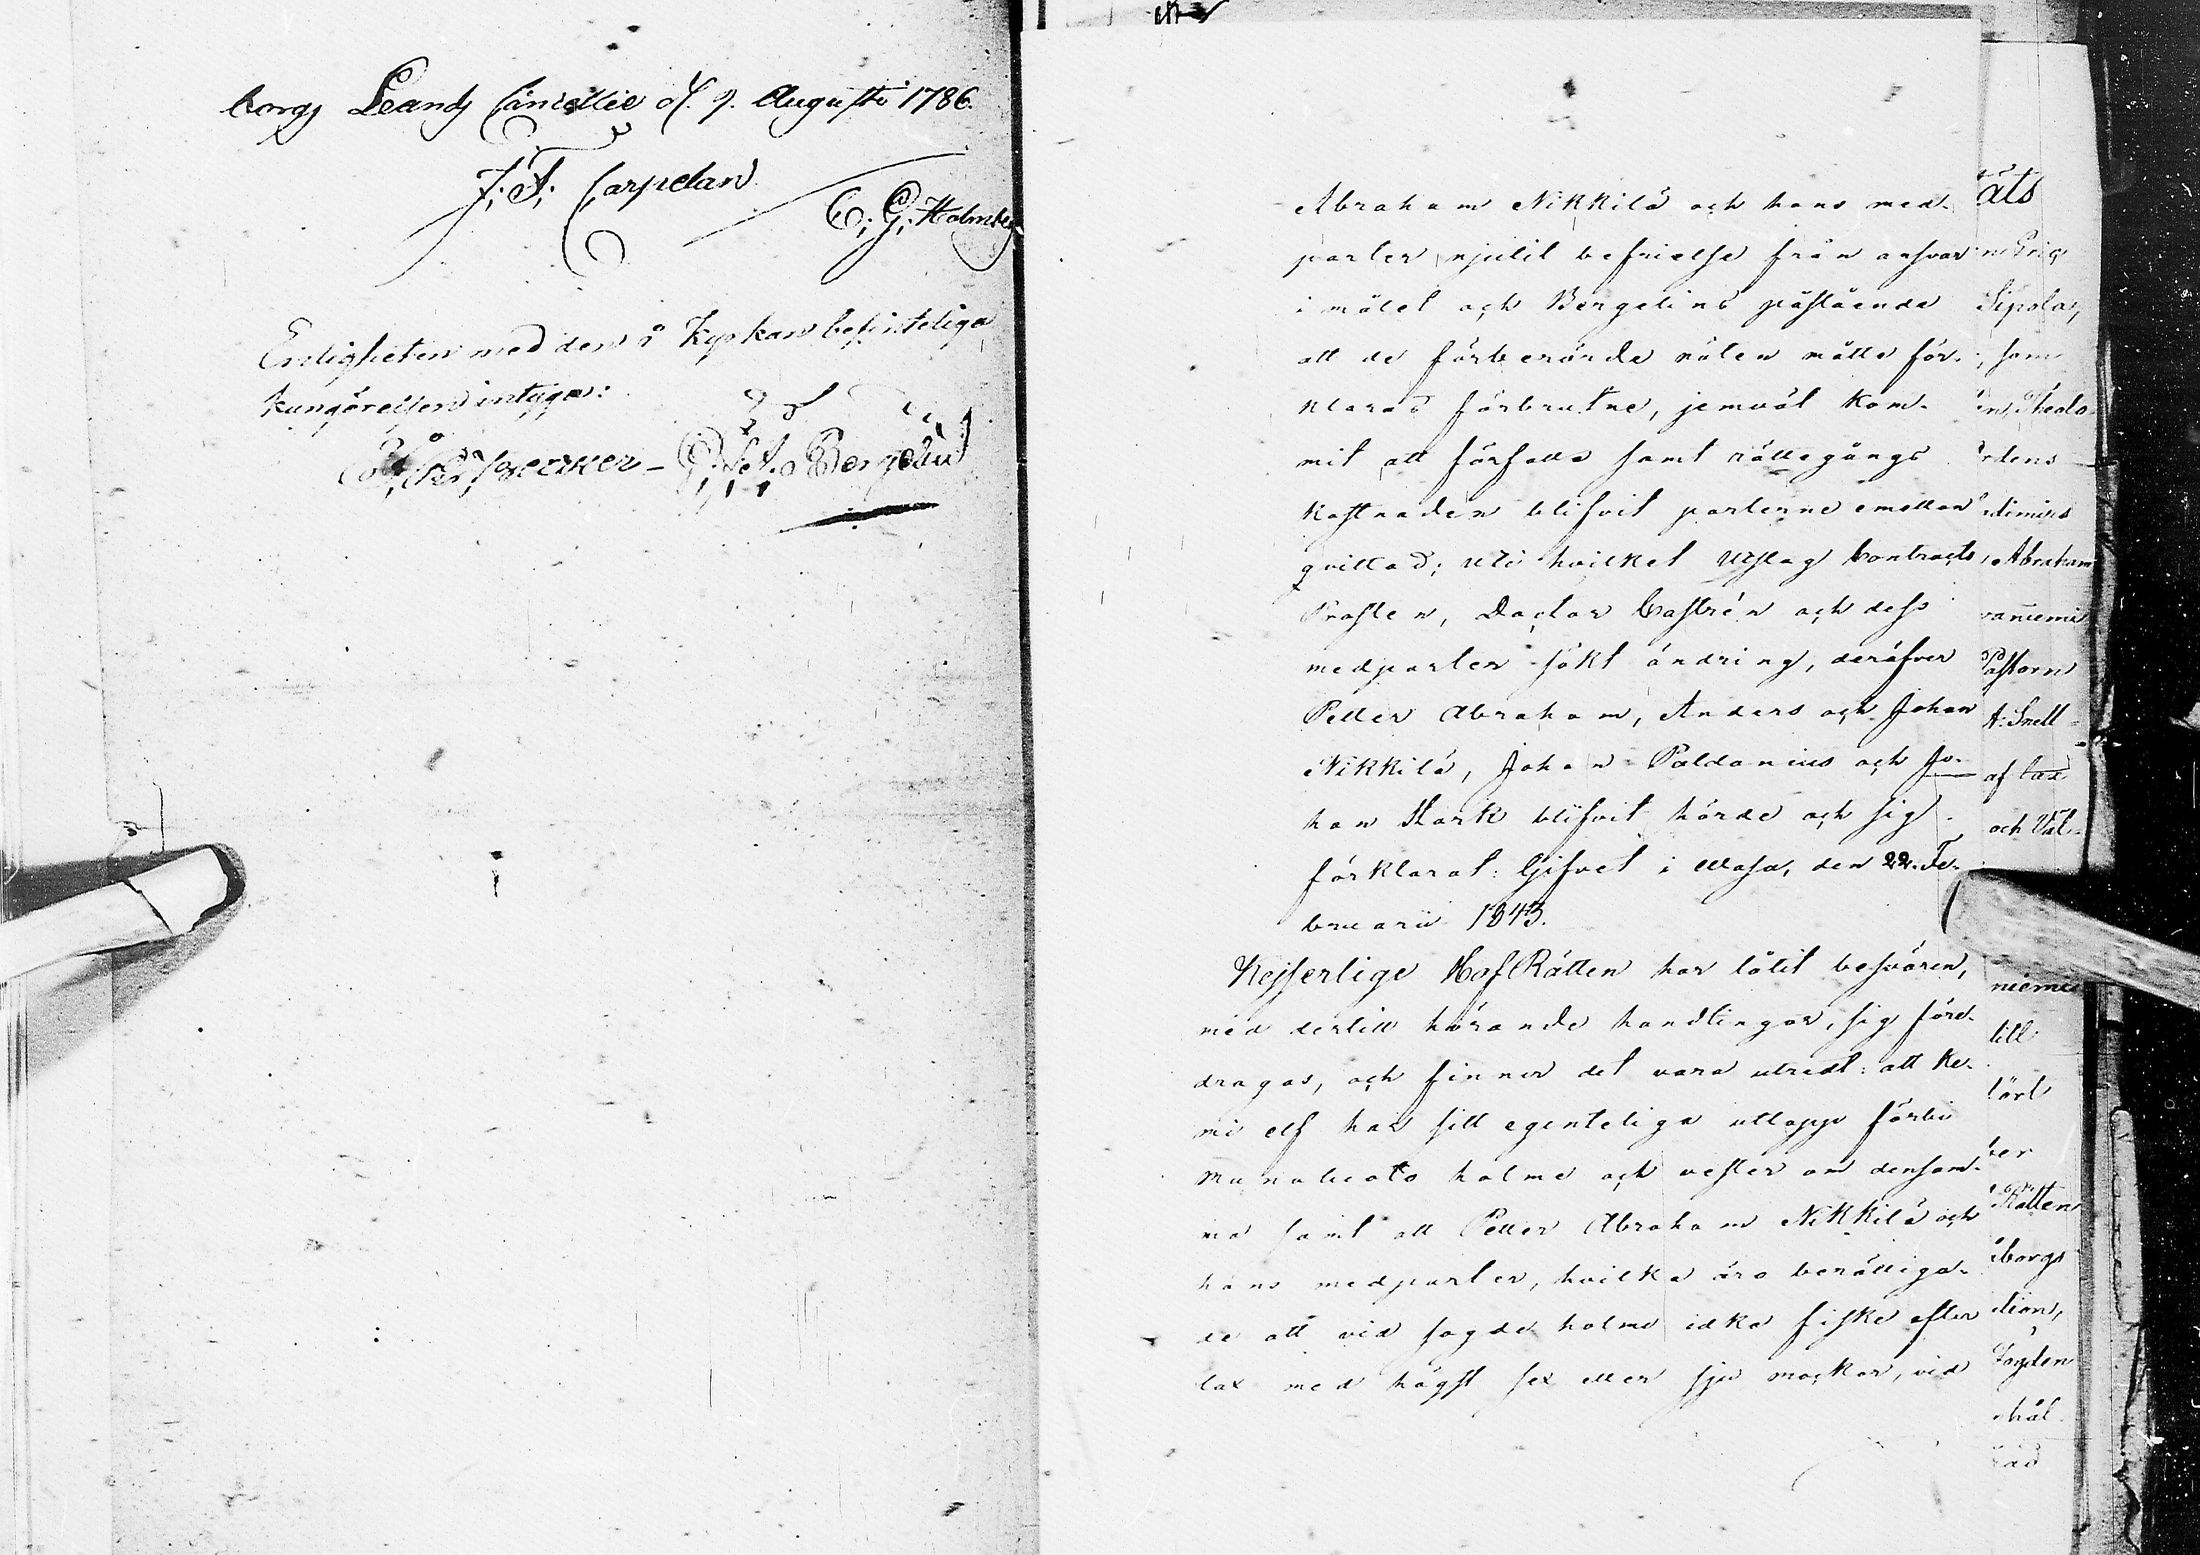 borgs Lands Cancellie d. 9. Augusti 1786.
J. A. Carpelan
C. G. Holmberg
Enligheten med den i Kyrkan befinteliga
kungörelsen intyga:
Bergelin
Abraham Nikkilä och hans med-
parter njutit befrielse från ansvar
i målet och Bergelins påstående
att de förberörde näten måtte för-
klaras förbrutne, jemväl kom-
mit att förfalla samt rättegångs
kostnaden blifvit parterne emellan
qvittad; uti hvilket Utslag Contracts
Prosten, Doctor Castrén och dess
medparter sökt ändring, deröfver
Petter Abraham, Anders och Johan
Nikkilä, Johan Paldanius och Jo-
han Stark blifvit hörde och sig
förklarat: Gifvet i Wasa, den 22. Fe-
bruarii 1843.
Kejserlige HofRätten har låtit besvären,
med dertill hörande handlingar, sig före-
dragas, och finner det vara utredt: att Ke-
mi elf har sitt egenteliga utlopp förbi
Munaluoto holme och vester om densam-
ma samt att Petter Abraham Nikkilä och
hans medparter, hvilka äro berättiga-
de att vid sagde holme idka fiske efter
lax med högst sex eller sju mockor, vid
äts
Sipola,
, som
rdens
Abraham
Pastorn
A: Snell-
af lax
och Väl-
niemi
till
Rätten
borgs
Fogden